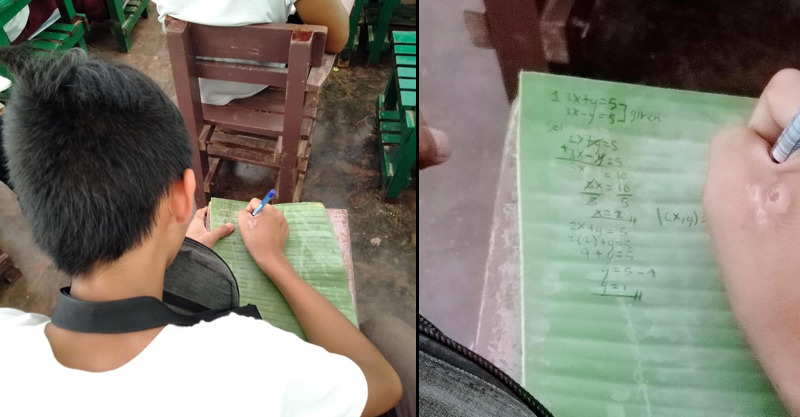 1 2x+y=5
3x-y=5 ] given
Sol
2x+y=5
+ 3x-y=5
5x = 10
5x = 10
5 5
x=2 |(x,y)=
2x+y=5
2(2)+y=5
4+y=5
y=5-4
y=1